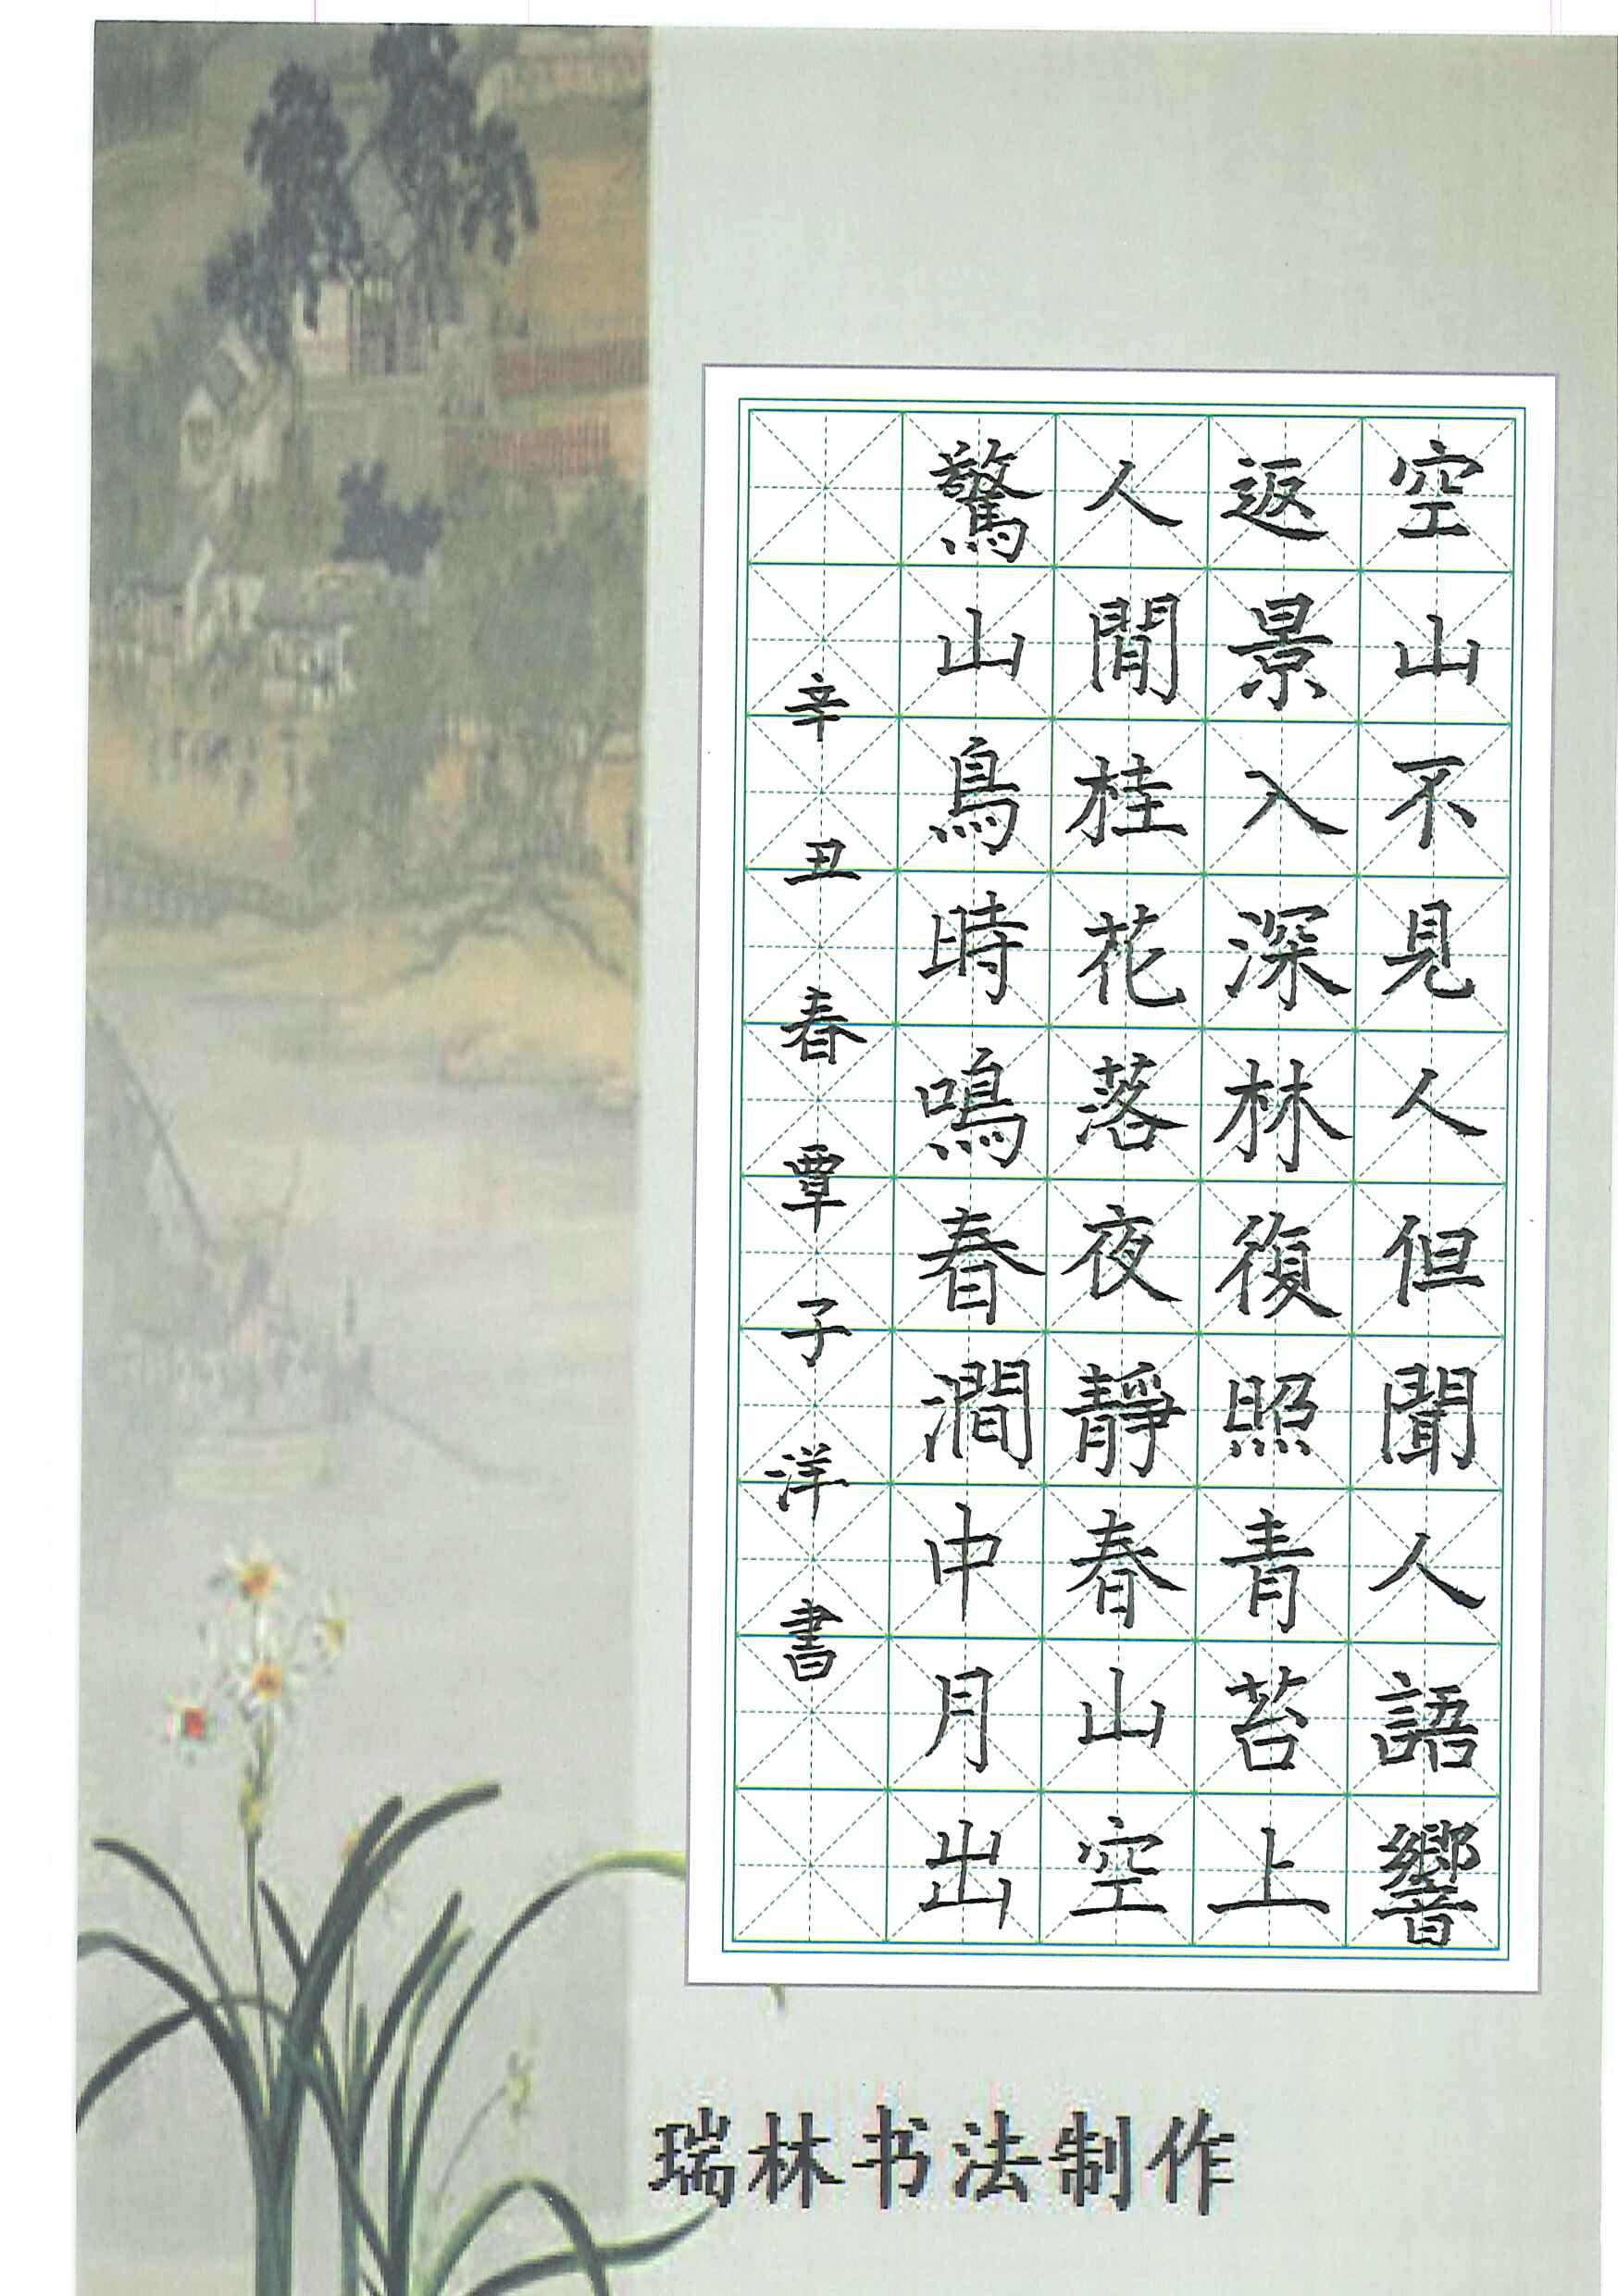 空山不見人但聞人語響
返景入深林復照青苔上
人閒桂花落夜靜春山空
驚山鳥時鳴春澗中月出
辛丑春覃子洋書
瑞林书法制作